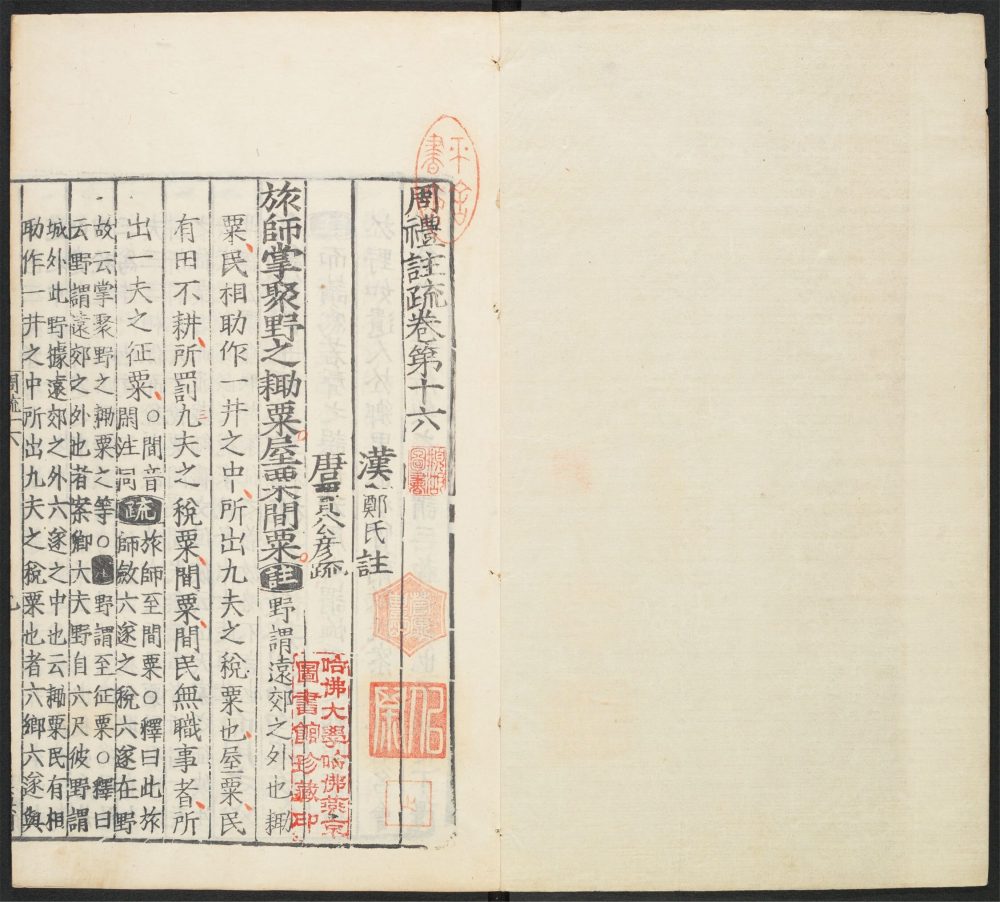 周禮註疏卷第十六
漢鄭氏註
唐賈公彥疏
旅師掌聚野之耡粟屋粟間粟註野謂遠郊之外也耡
粟民相助作一井之中所出九夫之稅粟也屋粟民
有田不耕所罰三夫之稅粟間粟間民無職事者所
出一夫之征粟○間音
閑注同疏旅師至間粟○釋曰此旅
師斂六遂之稅六遂在野
故云掌聚野之耡粟之等○註野謂至征粟○釋曰
云野謂遠郊之外也者案鄉大夫野自六尺彼野謂
城外此野據遠郊之外六遂之中也云耡粟民有相
助作一井之中所出九夫之稅粟也者六鄉六遂與
周疏十六
哈佛大學哈佛燕京
圖書館珍藏印